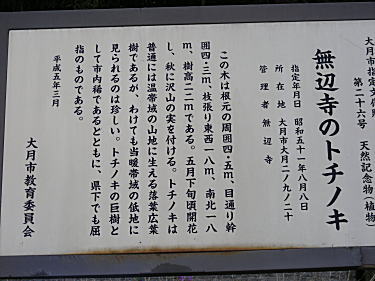 大月市指定文化財
第二十六号　天然記念物(植物)
無辺寺のトチノキ
指定年月日　昭和五十一年八月八日
所在地　大月市大月二ノ九ノ二十
管理者　無辺寺
この木は根元の周囲四・五m、目通り幹
囲四・三m、枝張り東西一八m、南北一八
m、樹高二二mである。五月下旬頃開花
し、秋に沢山の実を付ける。トチノキは
普通には温帯域の山地に生える落葉広葉
樹であるが、わけても当暖帯域の低地に
見られるのは珍しい。トチノキの巨樹と
して市内稀であるとともに、県下でも屈
指のものである。
平成五年三月
大月市教育委員会